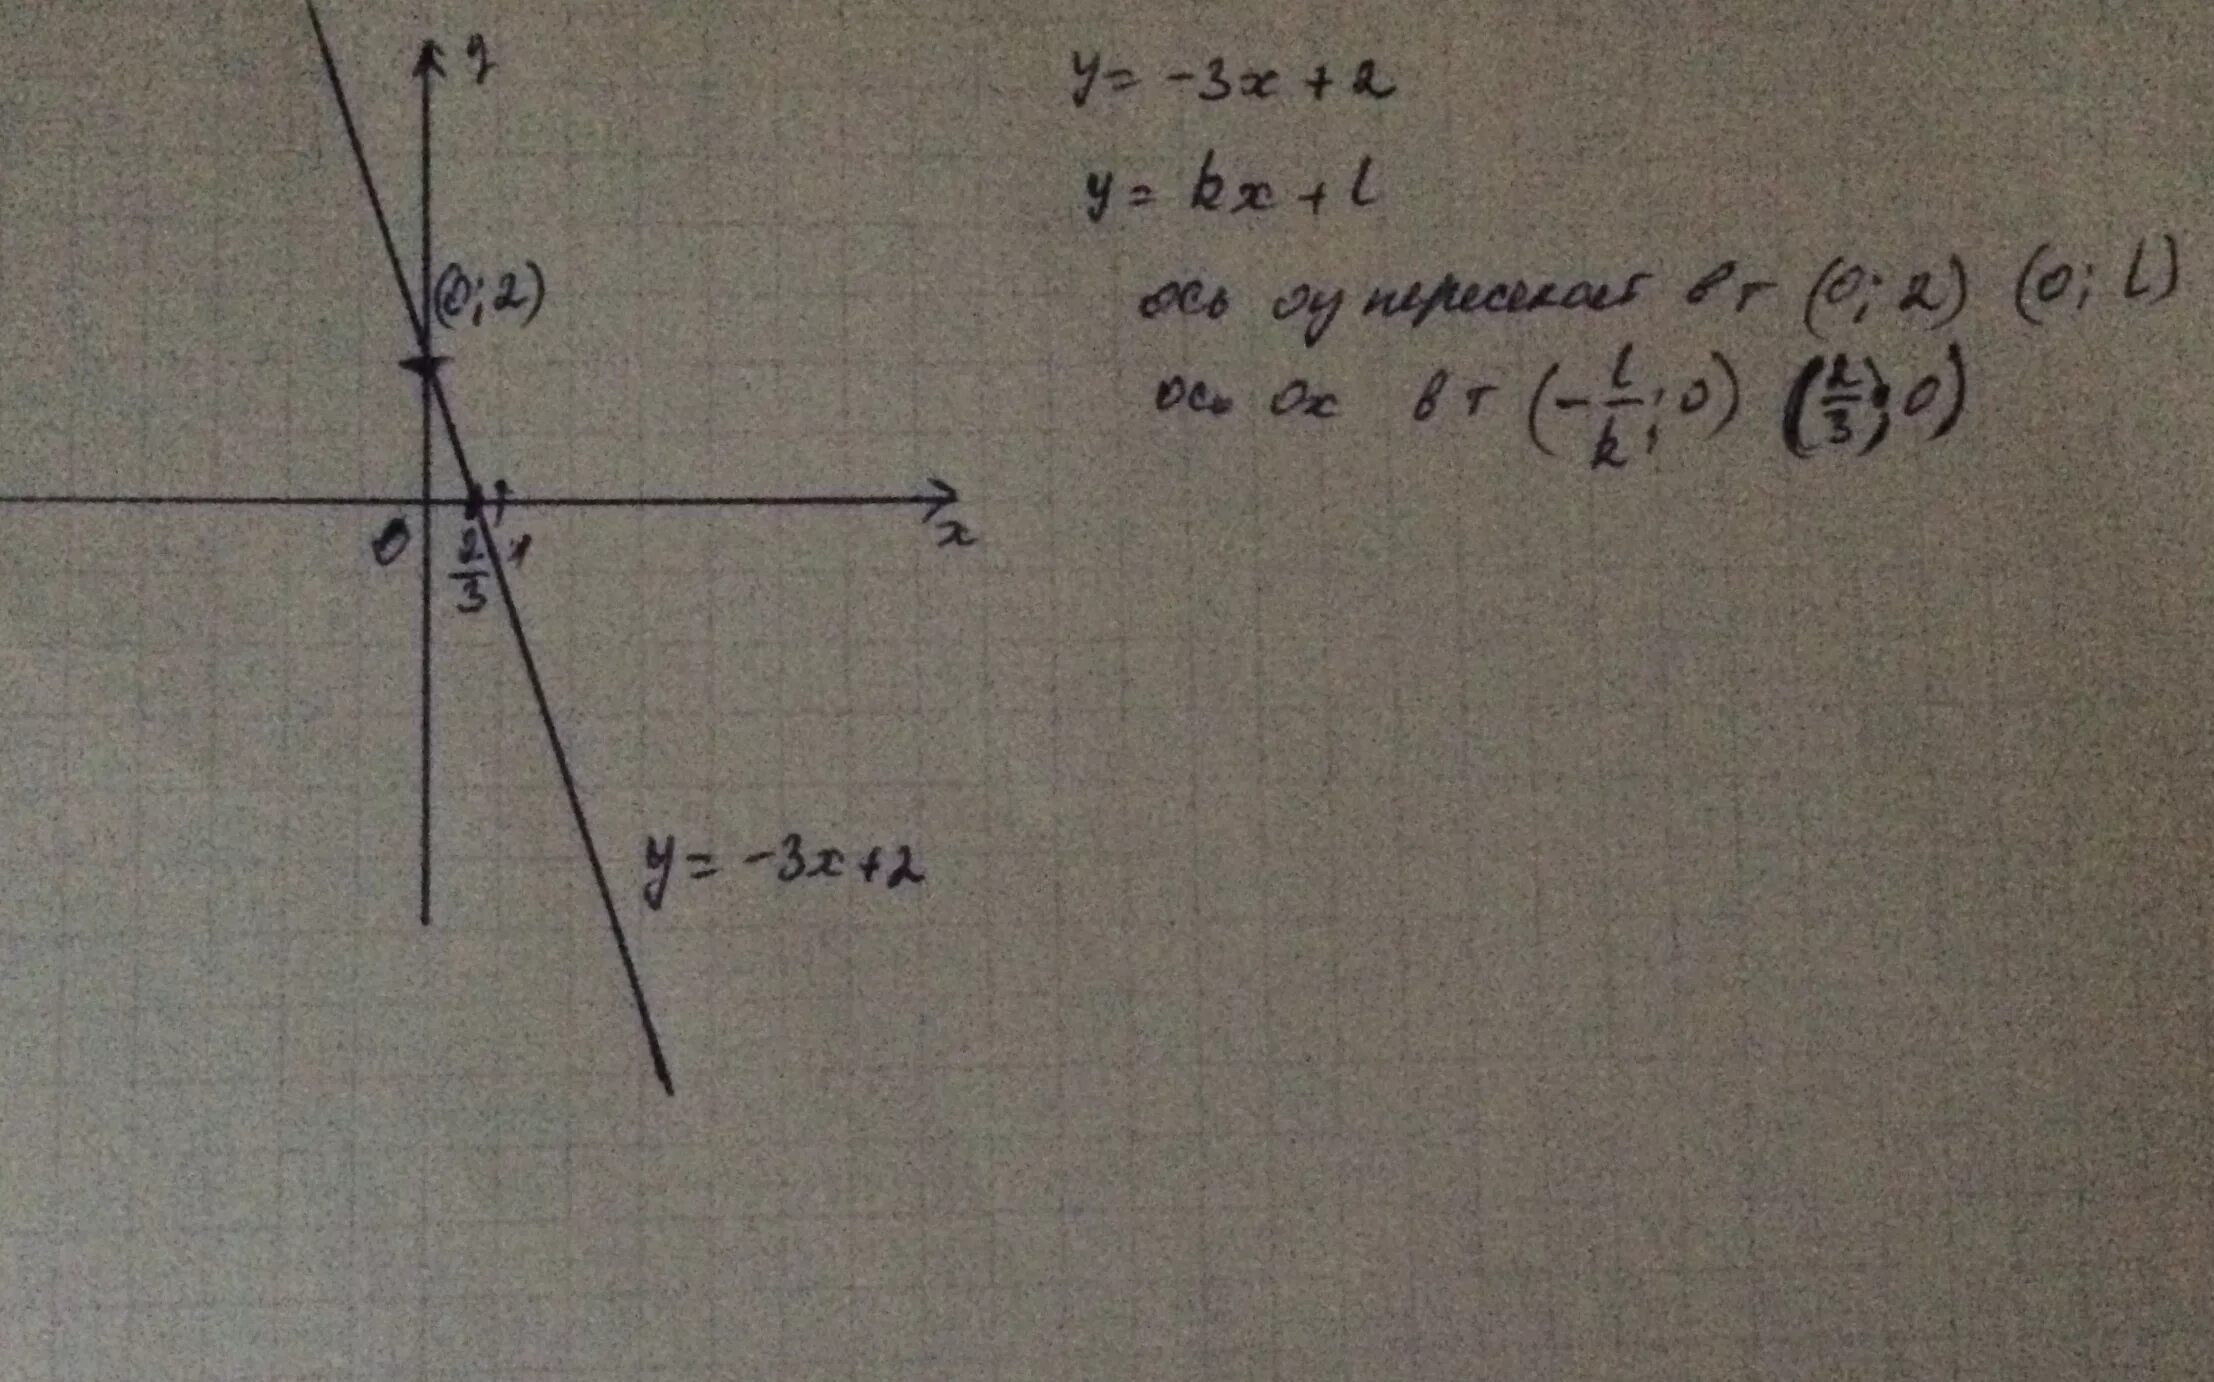 y
y = -3x + 2
y = kx + l
(0; 2)
ось oy пересекает в т (0; 2) (0; l)
ось ox в т (-l/k; 0) (2/3; 0)
0
2/3
1
x
y = -3x+2